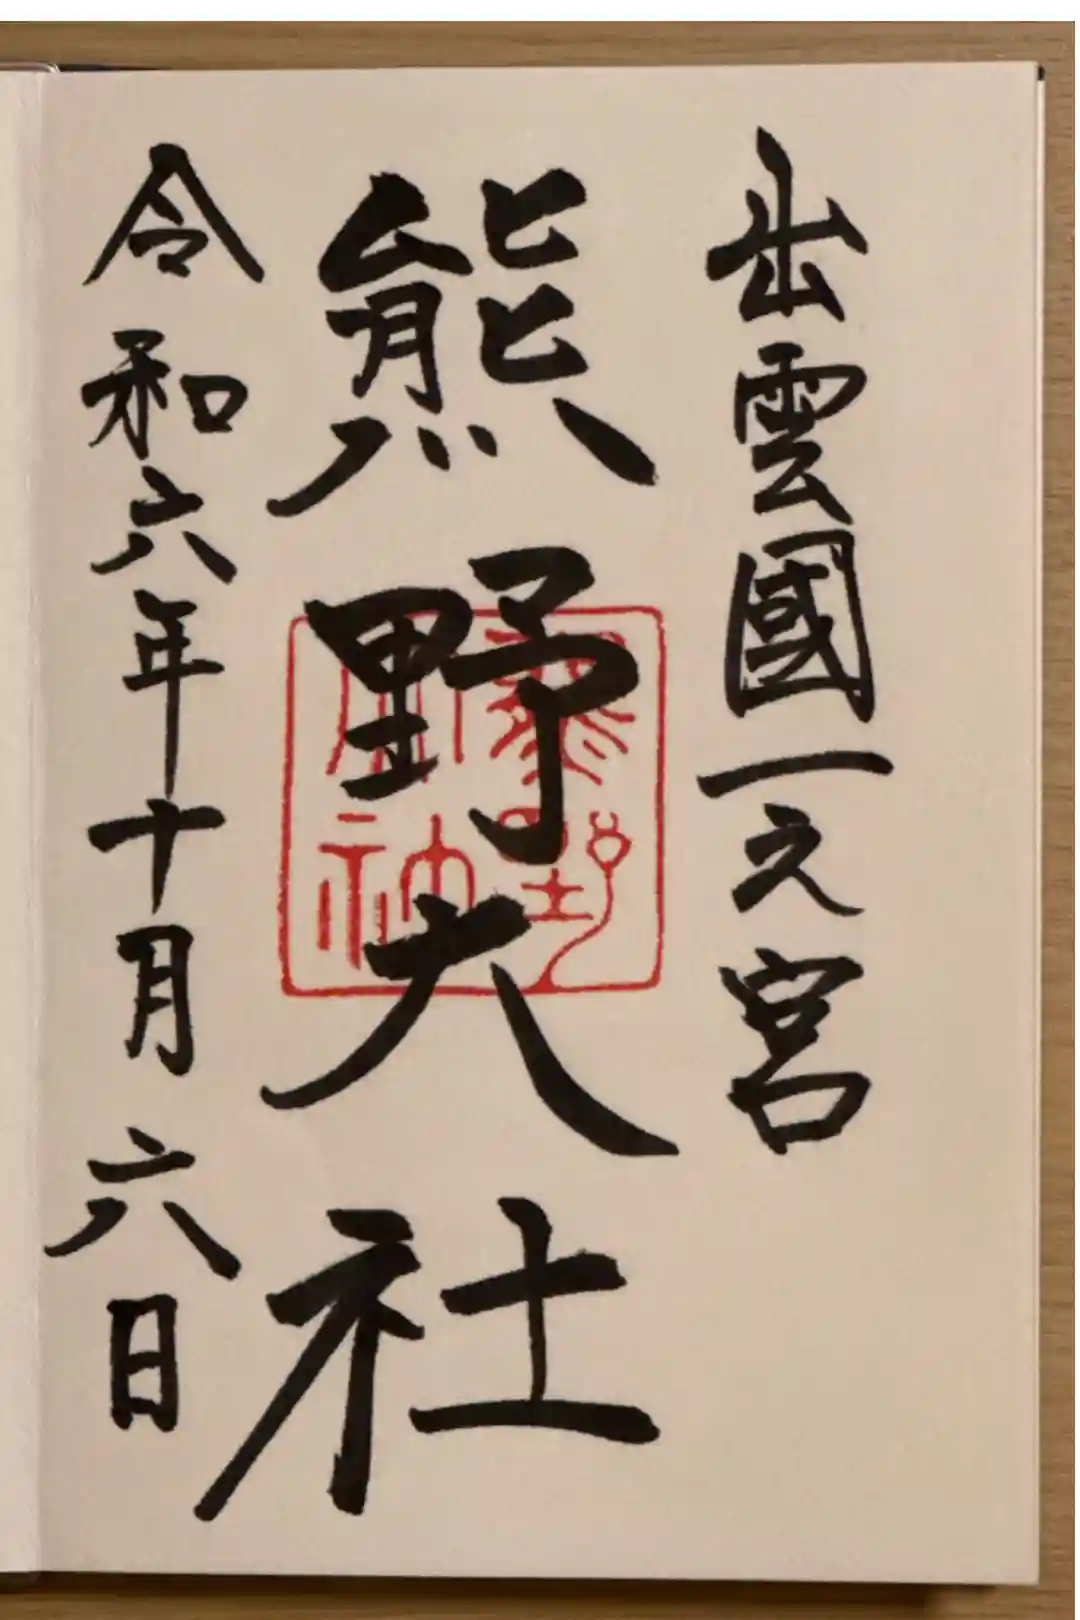 出雲國一之宮
熊野大社
令和六年十月六日
熊野
神社